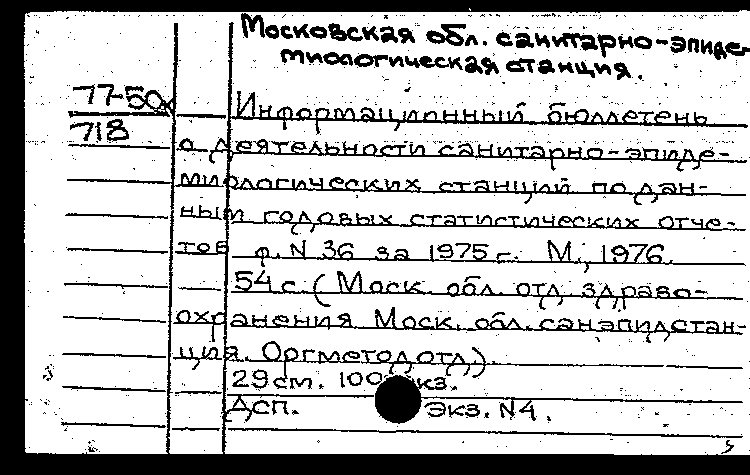 Московская обл. санитарно-эпиде-
миологическая станция.
77-50х
718
Информационный бюллетень
о деятельности санитарно-эпиде-
миологических станций по дан-
ным годовых статистических отче-
тов ф. N 36 за 1975 г. М., 1976.
54 с. (Моск. обл. отд. здраво-
охранения Моск. обл. санэпидстан-
ция. Оргметодотд).
29 см. 100 экз.
ДСП. Экз. N4.